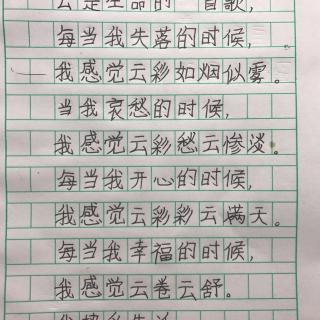 云是生命的一首歌，
每当我失落的时候，
我感觉云彩如烟似雾。
当我哀愁的时候，
我感觉云彩愁云惨淡。
每当我开心的时候，
我感觉云彩彩云满天。
每当我幸福的时候，
我感觉云卷云舒。